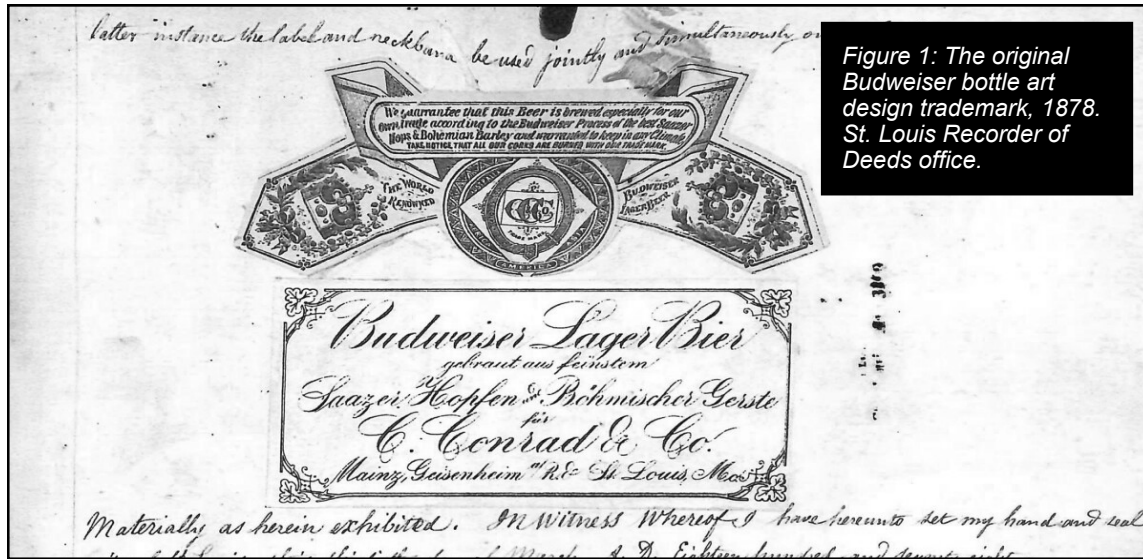 latter instance the label and neckband be used jointly and simultaneously
Figure 1: The original
Budweiser bottle art
design trademark, 1878.
St. Louis Recorder of
Deeds office.
We guarrantee that this Beer is brewed especially for our
own trade according to the Budweiser Process of the best Saazer
Hops & Bohemian Barley and warranted to keep in any Climate
TAKE NOTICE THAT ALL OUR CORKS ARE BURNED WITH OUR TRADE MARK.
THE WORLD
RENOWNED
CCCo.
TRADE MARK
BUDWEISER
LAGER BEER
AMERICA
Budweiser Lager Bier
gebraut aus feinstem
Saazer Hopfen und Böhmischer Gerste
für
C. Conrad & Co.
Mainz, Geisenheim a/R. & St. Louis, Mo.
Materially as herein exhibited. In Witness Whereof I have hereunto set my hand and seal
March A. D. Eighteen hundred and seventy eight